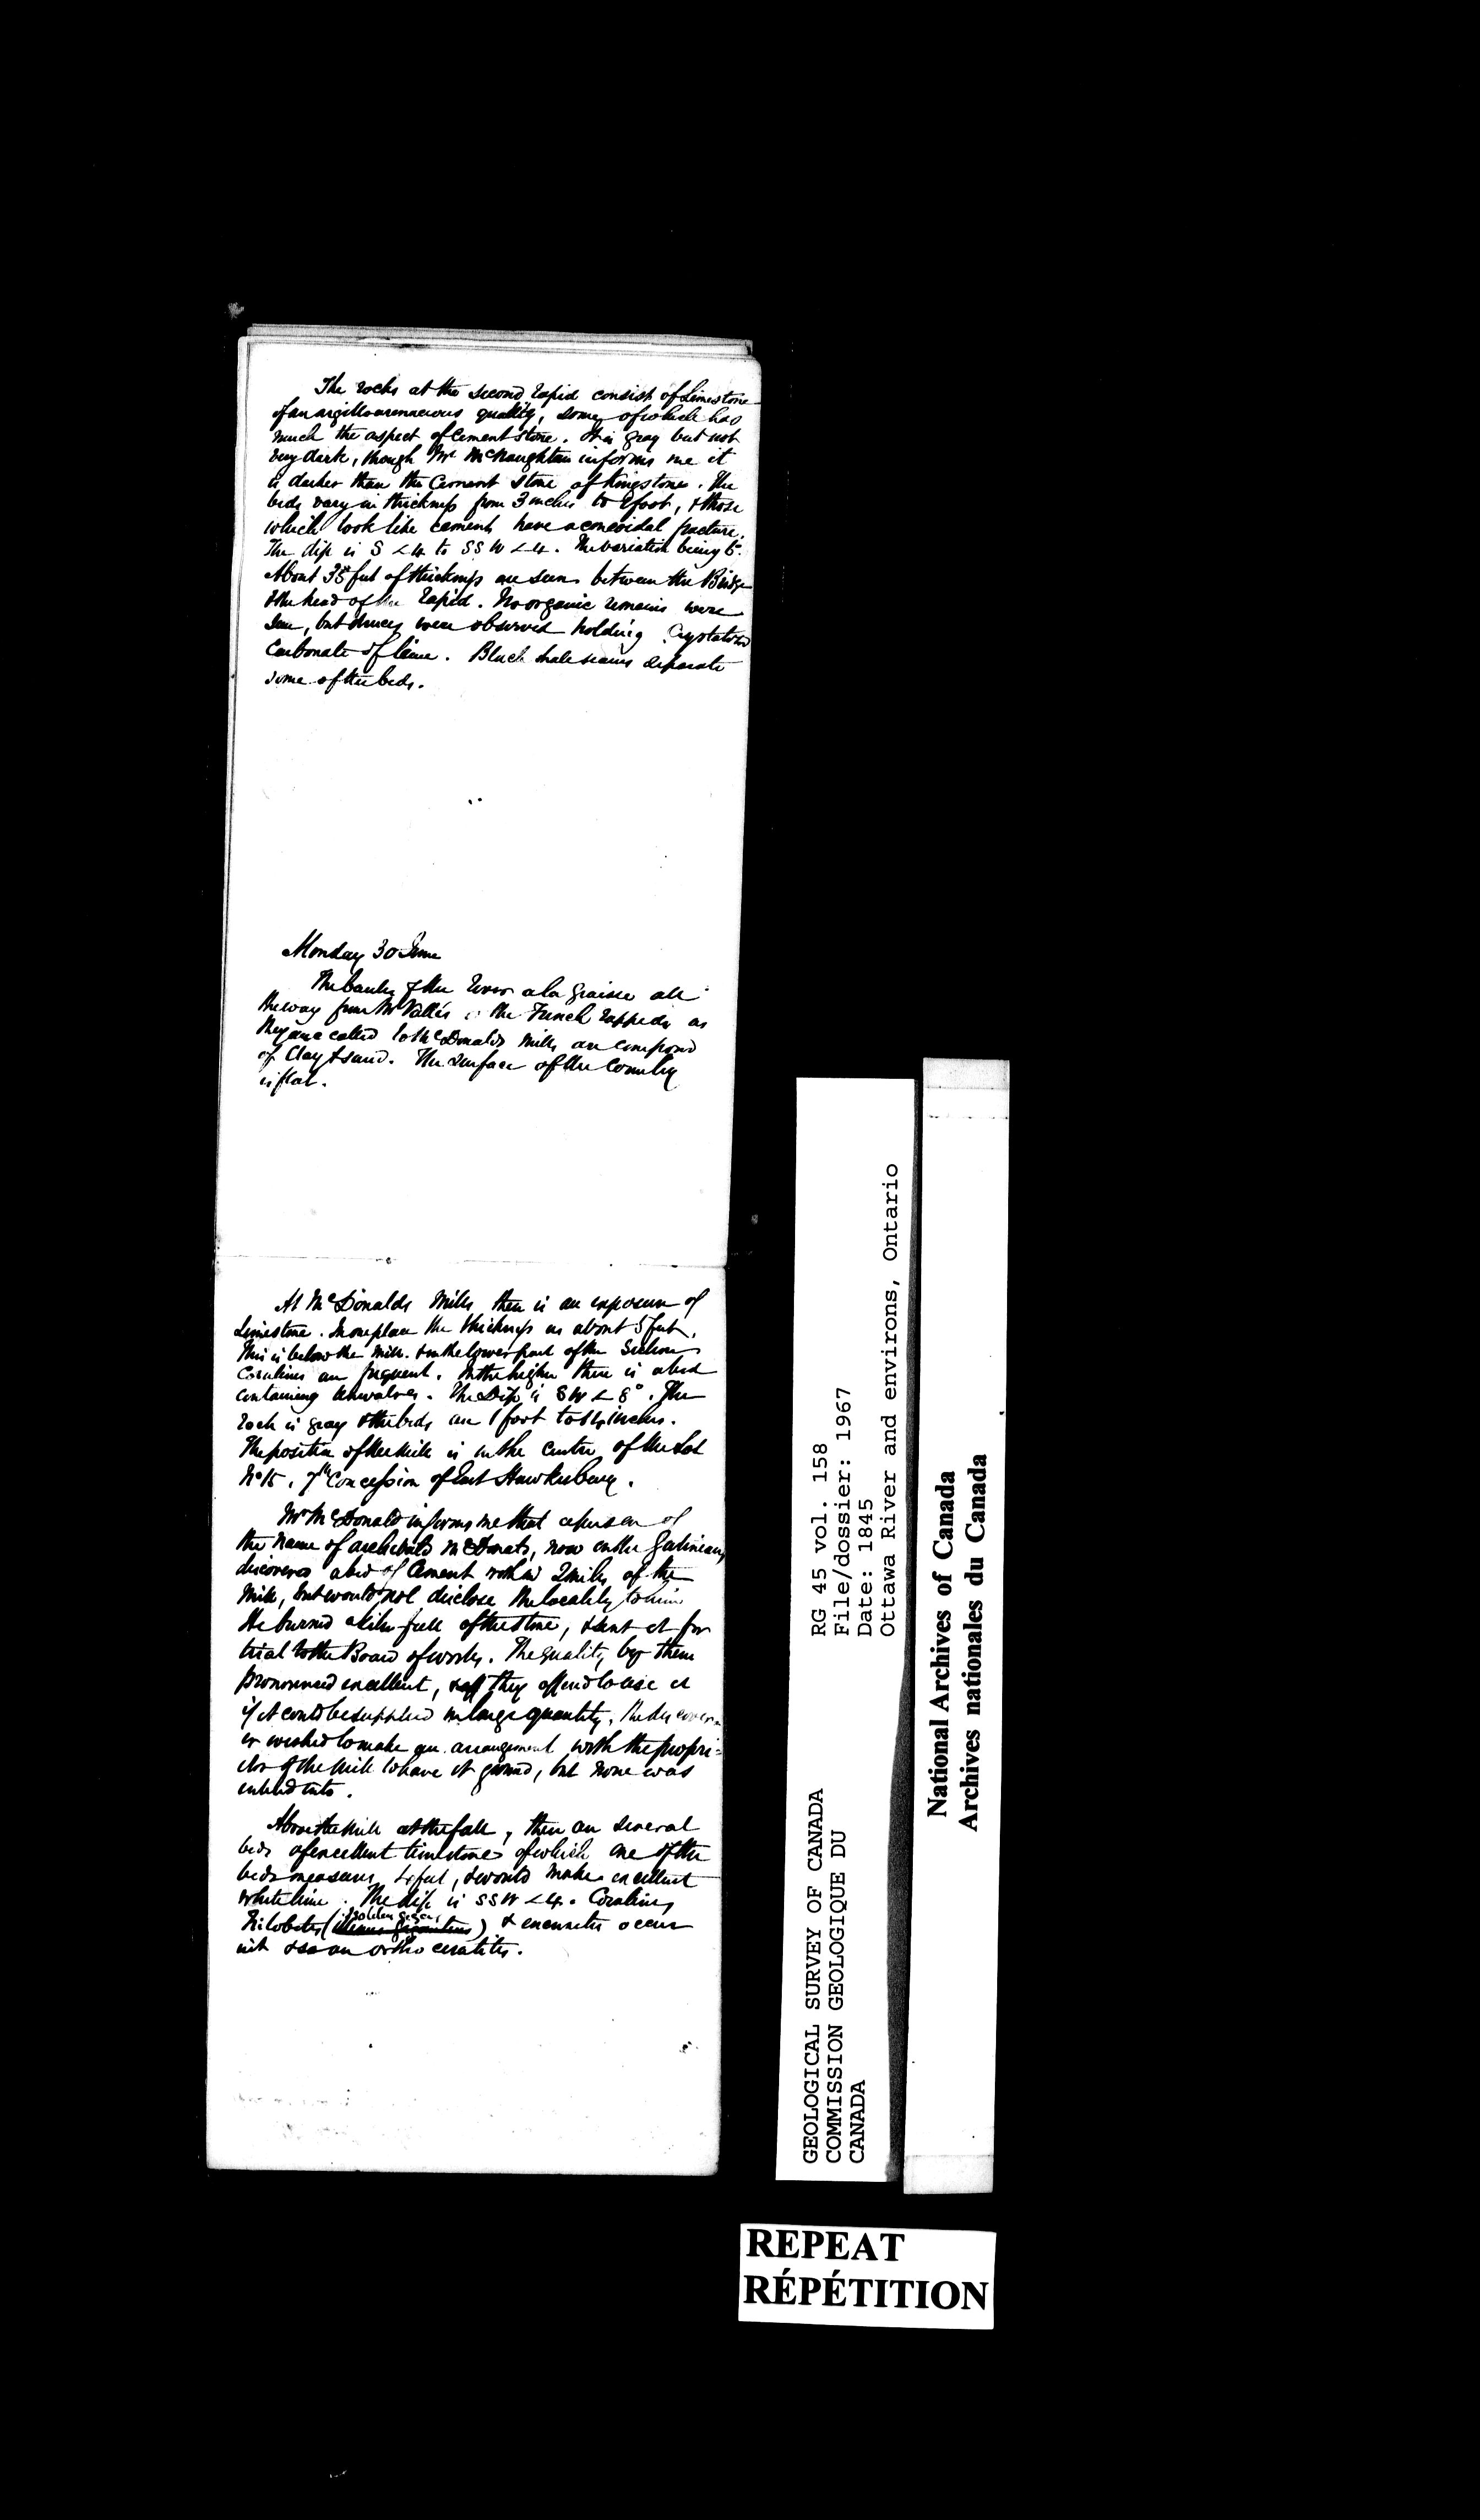 The rocks at the second rapid consist of Limestone
of an argilloarenaceous quality, some of which has
much the aspect of Cement stone. It is gray but not
very dark, though Mr McNaughton informs me it
is darker than the Cement stone of Kingstone. The
beds vary in thickness from 3 inches to 2 foot, & those
which look like cement have a concoidal fracture.
The dip is S < 4 to SSW < 4. The variation being 6°.
About 35 feet of thickness are seen between the Bridge
& the head of the rapid. No organic remains were
seen, but druses were observed holding Crystalized
Carbonate of lime. Black shale seams separate
some of the beds.
Monday 30 June
The banks of the River a la Graisse all
the way from Mr Vallés the French Rapids as
they are called to McDonalds Mills are composed
of Clay & sand. The surface of the Country
is flat.
At McDonalds Mills there is an exposure of
Limestone. In one place the thickness is about 5 feet.
This is below the Mill. & in the lower part of the Section
Coralines are frequent. In the higher there is a bed
containing univalves. The Dip is SW < 8°. The
rock is gray & the beds are 1 foot to 14 inches.
The position of the Mill is in the Centre of the Lot
No 15. 7th Concession of East Hawkesbury.
Mr McDonald informs me that a person of
the name of Archibald McDonald, now on the Gatineau,
discovered a bed of Cement within 2 miles of the
Mill, but would not disclose the locality to him
He burned a kiln full of the stone, & sent it for
trial to the Board of works. The quality by them
pronounced excellent, & they offered to use it
if it could be supplied in large quantity. The discover-
er wished to make an arrangement with the propri-
etor of the Mill to have it ground, but none was
entered into.
Above the Mill at the fall, there are several
beds of excellent limestone of which one of the
beds measures 4 feet, & would make excellent
white lime. The dip is SSW < 4. Coralines
Isolelus gigas
Trilobites (Illenus giganteus) & encrinites occur
in it & an orthoceratites.
GEOLOGICAL SURVEY OF CANADA
COMMISSION GEOLOGIQUE DU
CANADA
RG 45 vol. 158
File/dossier: 1967
Date: 1845
Ottawa River and environs, Ontario
National Archives of Canada
Archives nationales du Canada
REPEAT
RÉPÉTITION